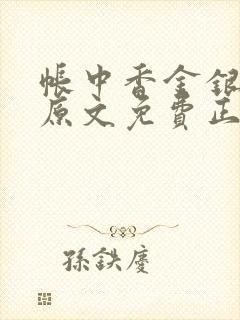 帳中香金銀
原文免費正
孫鉄慶